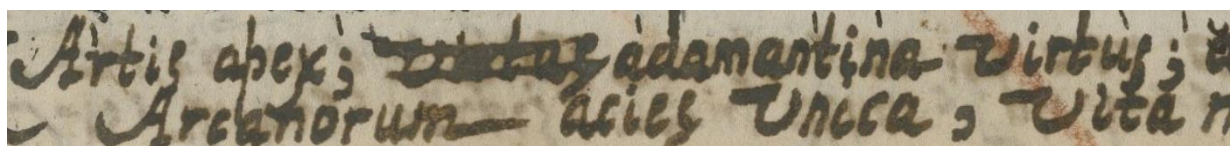 Artis apex; adamantina Virtus;
Arcanorum acies Unica, Vita